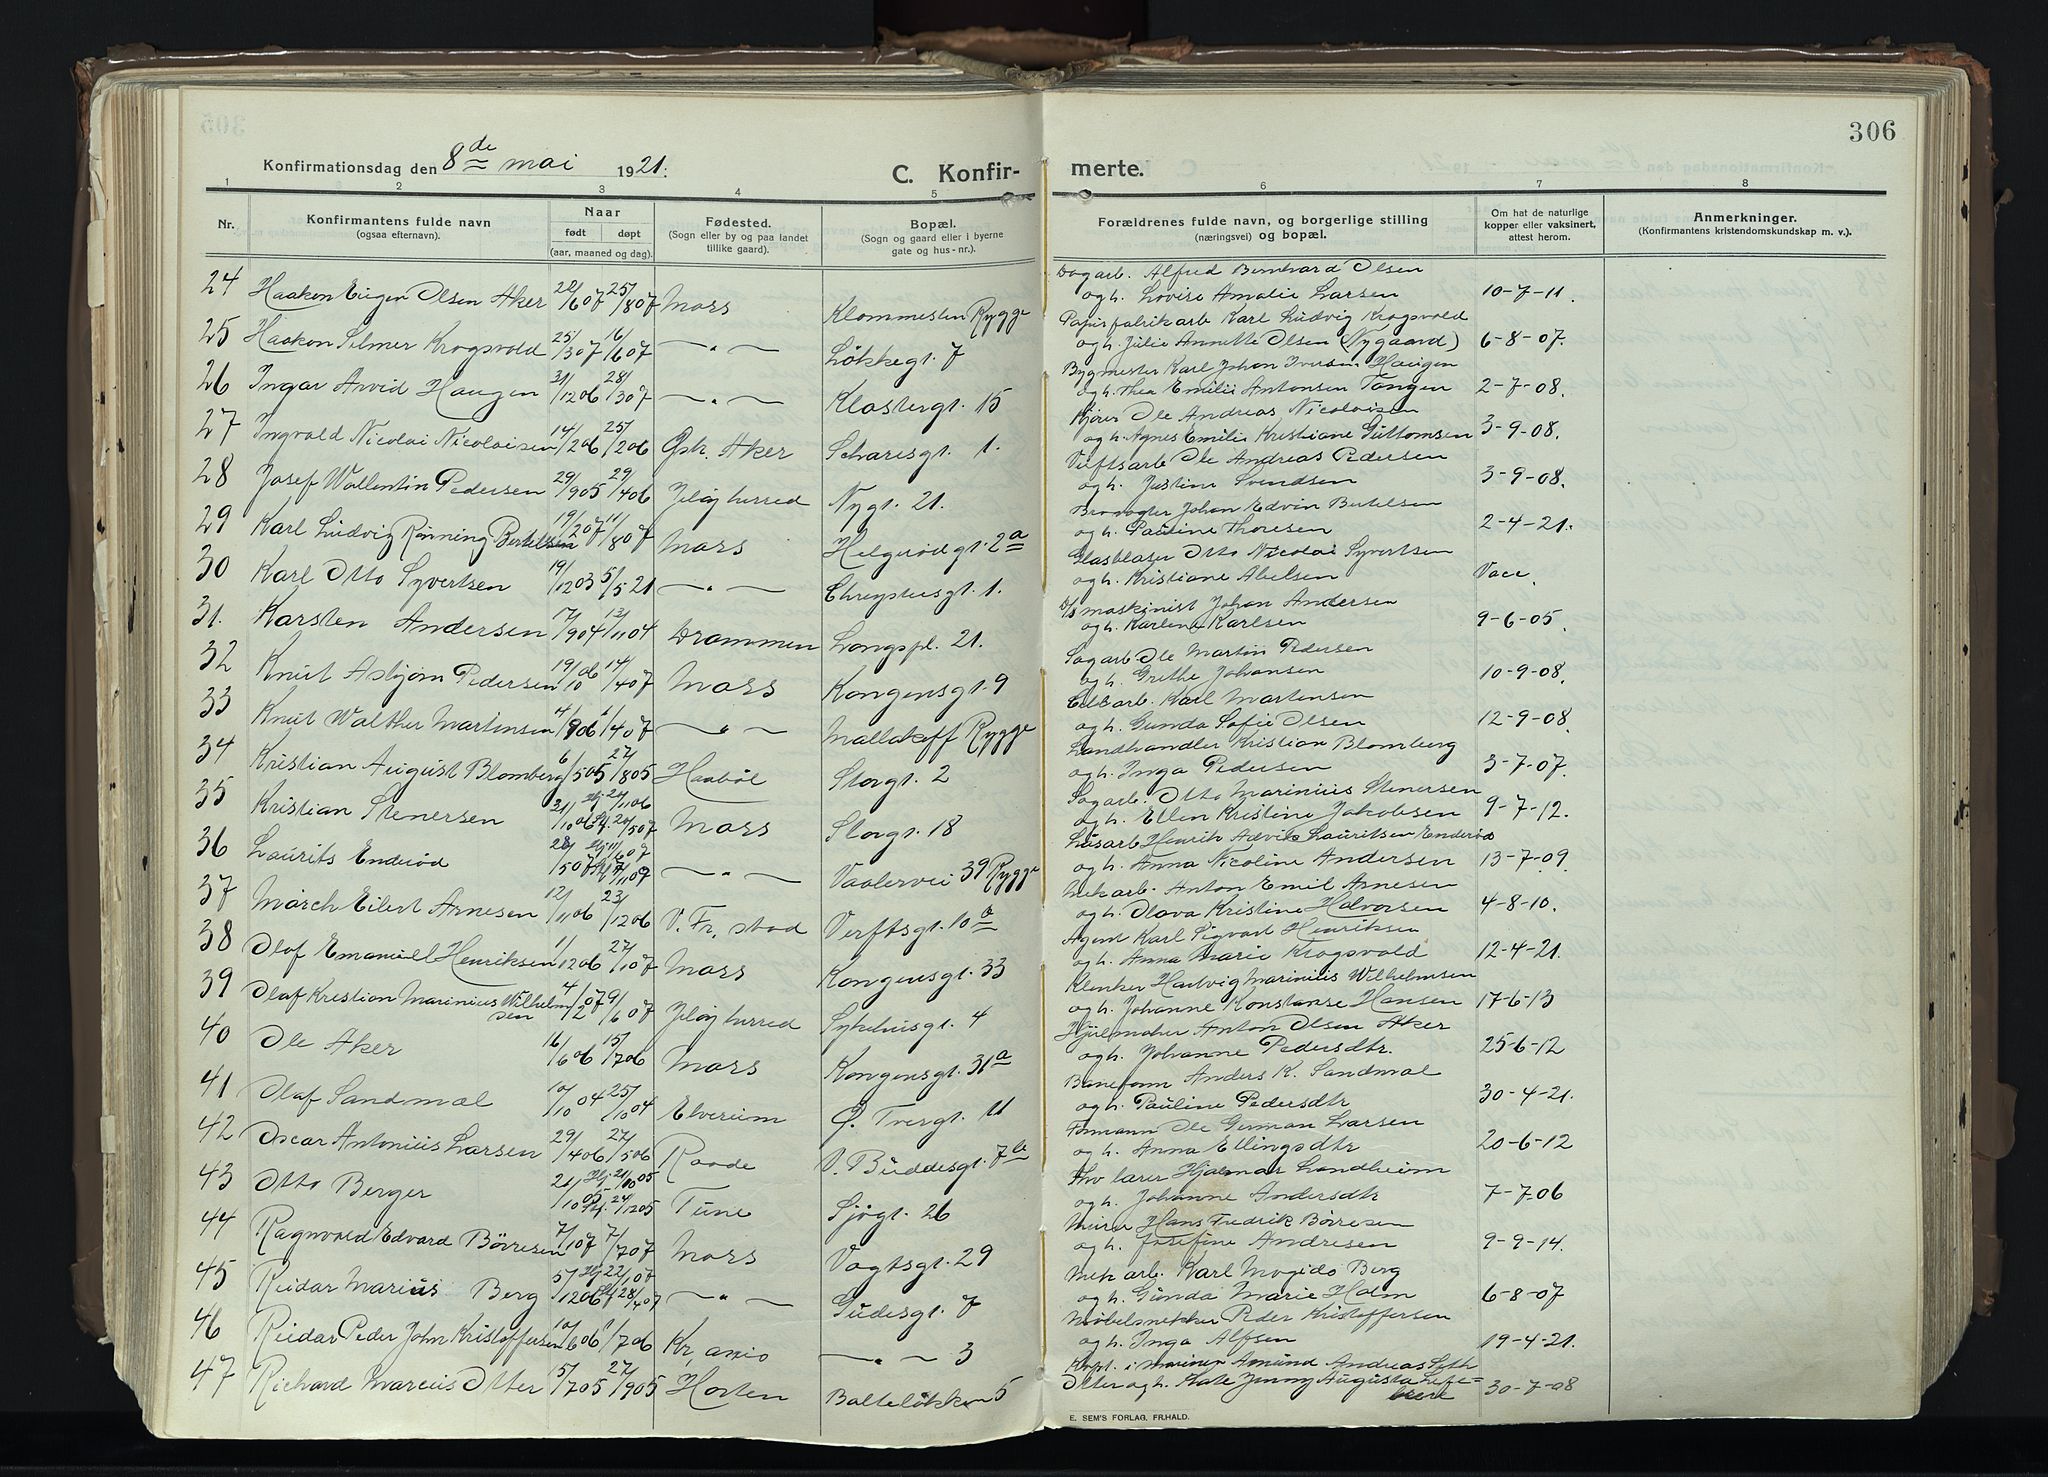 306
Konfirmationsdag den 8de mai 1921.
C. Konfirmerte.
1 2 3 4 5 6 7 8
Nr.
Konfirmantens fulde navn
(ogsaa efternavn).
Naar
født døpt
(aar, maaned og dag).
Fødested.
(Sogn eller by og paa landet
tillike gaard).
Bopæl.
(Sogn og gaard eller i byerne
gate og hus-nr.).
Forældrenes fulde navn, og borgerlige stilling
(næringsvei) og bopæl.
Om hat de naturlige
kopper eller vaksinert,
attest herom.
Anmerkninger.
(Konfirmantens kristendomskundskap m. v.).
24 Haakon Eugen Olsen Aker 28/6 07 25/8 07 Moss Klommesten Rygge Dagarb. Alfred Bernhard Olsen
og h. Lovise Amalie Larsen 10-7-11.
25 Haakon Selmer Krogsvold 25/3 07 16/6 07 —„— Løkkegt. 7 Papirfabrikarb Karl Ludvig Krogsvold
og h. Julie Annette Olsen (Nygaard) 6-8-07.
26 Ingar Arvid Haugen 31/12 06 28/3 07 —„— Klostergt. 15 Bygmester Karl Johan Iversen Haugen
og h. Thea Emilie Antonsen Tangen 2-7-08.
27 Ingvald Nicolai Nicolaisen 14/2 06 25/2 06 Gsk. Aker Scharesgt. 1. Kjører Ole Andreas Nicolaisen
og h. Agnes Emilie Kristiane Guttomsen 3-9-08.
28 Josef Wallentin Pedersen 29/9 05 29/4 06 Jeløy herred Nygt. 21. Verftsarb Ole Andreas Pedersen
og h. Justine Svendsen 3-9-08.
29 Karl Ludvig Rønning Bertelsen 19/2 07 11/8 07 Moss Helgerødgt. 2a Brovogter Johan Edvin Bertelsen
og h. Pauline Thoresen 2-4-21.
30 Karl Otto Syvertsen 19/12 03 5/5 21 —„— Chrystiesgt. 1. Glasblaser Otto Nicolai Syvertsen
og h. Kristiane Abelsen Vacc.
31. Karsten Andersen 17/9 04 13/11 04 Drammen Langspl. 21. D/S maskinist Johan Andersen
og h. Karline Karlsen 9-6-05.
32 Knut Asbjørn Pedersen 19/10 06 14/4 07 Moss Kongensgt. 9 Sagarb Ole Martin Pedersen
og h. Grethe Johansen 10-9-08.
33 Knut Walther Martinsen 4/9 06 1/4 07 —„— Mallakoff Rygge Karl Martensen
og h. Gunda Sofie Olsen 12-9-08.
34 Kristian August Blomberg 6/5 05 27/8 05 Haabøl Storgt. 2 Landhandler Kristian Blomberg
og h. Inga Pedersen 3-7-07.
35 Kristian Stenersen 21/10 06 Hj. 24/11 06 Kf. 20/5 07 Moss Storgt. 18 Sagarb. Otto Marinius Stenersen
og h. Ellen Kristine Jakobsen 9-7-12.
36 Laurits Enderød 28/5 07 —„— Vaalervei 39 Rygge Løsarb Henrik Lauritsen Enderød
og h. Anna Nicoline Andersen 13-7-09.
37 March Eilert Arnesen 12/11 06 23/12 06 V. Fr. stad Verftsgt. 10b Mek arb. Anton Emil Arnesen
og h. Olava Kristine Halvorsen 4-8-10.
38 Olaf Emanuell Henriksen 1/12 06 27/10 07 Moss Kongensgt. 33 Agent Karl Sigvart Henriksen
og h. Anna Marie Krogsvold 12-4-21.
39 Olaf Kristian Marinius Wilhelmsen 4/2 07 9/6 07 Jeløy herred Sykehusgt. 4 Klinker Hartvig Marinius Wilhelmsen
og h. Johanne Konstanse Hansen 17-6-13
40 Ole Aker 16/6 06 15/7 06 Moss Kongensgt. 31a Hjulmaker Anton Olsen Aker
og h. Johanne Pedersdtr. 25-6-12
41 Olaf Sandmæl 10/10 04 25/10 04 Elverum Ø. Tvergt. 11 Baneform Anders K. Sandmæl
og h. Pauline Pedersdtr 30-4-21.
42 Oscar Antonius Larsen 29/4 06 27/5 06 Raade V. Buddesgt. 7b Formann Ole German Larsen
og h. Anna Ellingsdtr 20-6-12
43 Otto Berger 26/10 05 Kf. 24/12 05 Tune Sjøgt. 26 Fhv lærer Hjalmar Landheim
og h. Johanne Andersdtr 7-7-06
44 Ragnvald Edvard Börresen 7/1 07 7/7 07 Moss Vogtsgt. 29 Murer Hans Fredrik Börresen
og h. Josefine Andresen 9-9-14.
45 Reidar Marius Berg 5/12 06 Hj 22/1 07 Kf 28/4 07 —„— Gudesgt. 7 Mek arb. Karl Mogido Berg
og h. Gunda Marie Holm 6-8-07
46 Reidar Peder John Kristoffersen 10/6 06 1/7 06 Kr. ania —„— 3 Møbelsnekker Peder Kristoffersen
og h. Inga Alfsen 19-4-21.
47 Richard Marcus Otter 15/7 05 27/9 05 Horten Balteløkken 5 Kapt. i marinen Amund Andreas Seth
Otter og h. Kate Jenny Augusta Lefe=
bvere 30-7-08
E. SEM'S FORLAG, FR.HALD.